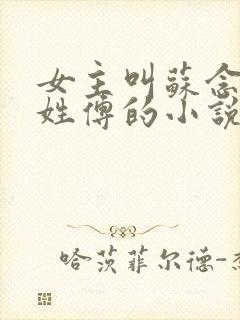 女主叫蘇念
姓傅的小說
哈茨菲尔德-杰